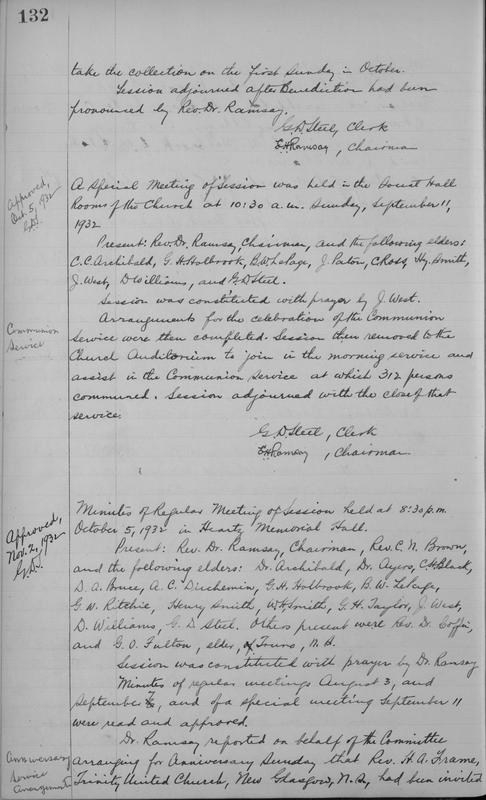 132
take the collection on the first Sunday in October.
Session adjourned after Benediction had been
pronounced by Rev. Dr. Ramsay.
G. D. Steel, Clerk
E.H. Ramsay, Chairman
Approved,
Oct. 5, 1932
G.D.S.
A Special Meeting of Session was held in the
Rooms of the Church at 10:30 a.m. Sunday, September 11,
1932
Present: Rev. Dr. Ramsay, Chairman, and the following elders:
C.C. Archibald, G. H. Holbrook, B.W. LePage, J. Paton, C Ross, Hy. Smith,
J. West, D Williams, and G.D. Steel.
Session was constituted with prayer by J. West.
Communion
Service
Arrangements for the celebration of the Communion
Service were then completed. Session then removed to the
Church Auditorium to join in the morning service and
assist in the Communion Service at which 312 persons
communed. Session adjourned with the close of that
service.
G. D. Steel, Clerk
E.H. Ramsay, Chairman
Approved,
Nov. 2, 1932
G.D.S.
Minutes of Regular Meeting of Session held at 8:30 p.m.
October 5, 1932 in Heartz Memorial Hall.
Present: Rev. Dr. Ramsay, Chairman, Rev. C. N. Brown,
and the following elders: Dr. Archibald, Dr. Ayers, C.H. Black,
D. A. Bruce, A. C. G. H. Holbrook, B. W. LePage,
G. W. Ritchie, Henry Smith, W.H. Smith, G. H. Taylor, J. West,
D. Williams, G. D. Steel. Others present were Rev. Dr. Coffin,
and G. O. Fulton, elder, of Truro, N. S.
Session was constituted with prayer by Dr. Ramsay
Minutes of regular meetings August 3, and
September 7, and of a special meeting September 11
were read and approved.
Anniversary
Service
arrangements
Dr. Ramsay reported on behalf of the Committee
arranging for Anniversary Sunday that Rev. H. A. Frame,
Trinity United Church, New Glasgow, N.S., had been invited